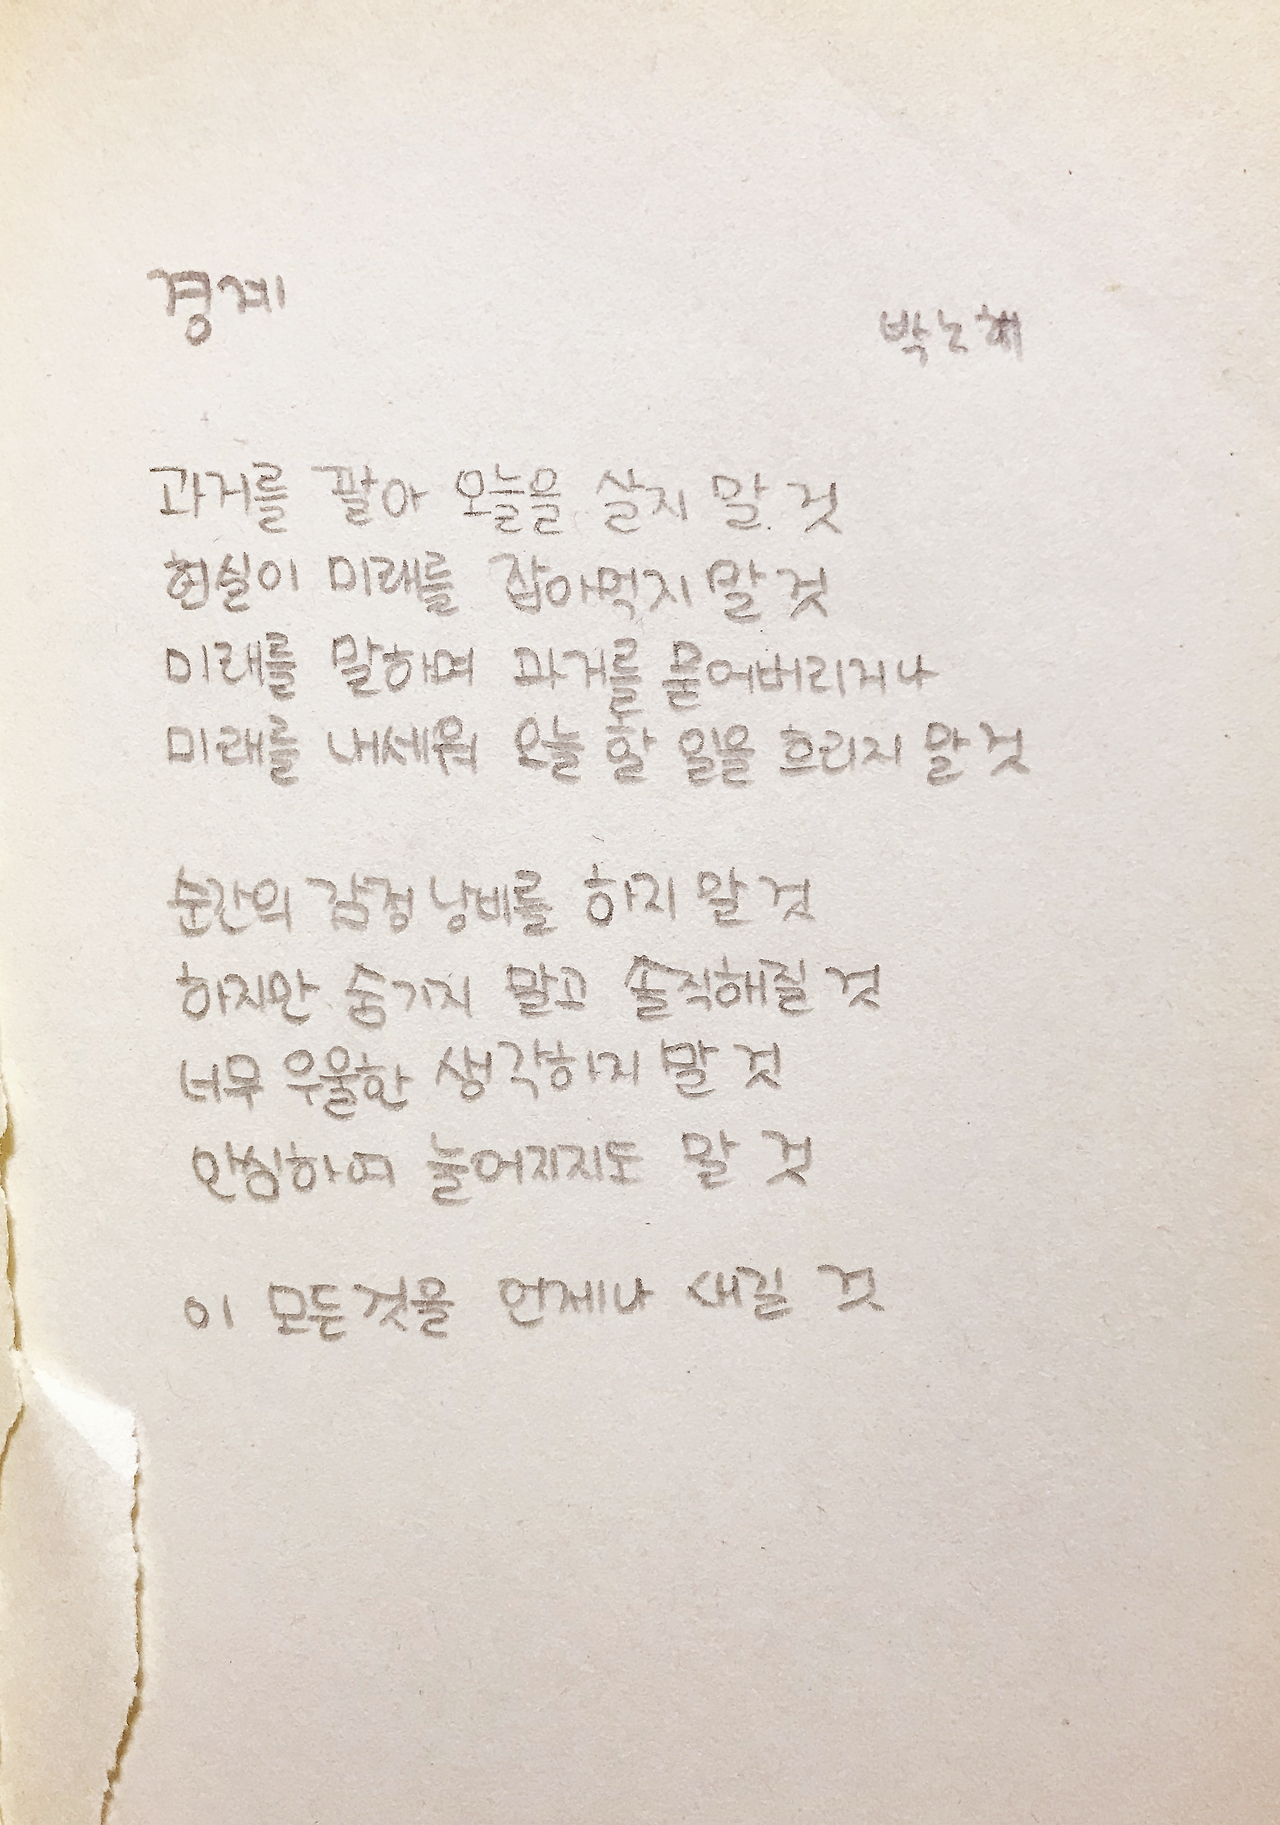 경계
박노해
과거를 팔아 오늘을 살지 말 것
현실이 미래를 잡아먹지 말 것
미래를 말하며 과거를 묻어버리거나
미래를 내세워 오늘 할 일을 흐리지 말 것
순간의 감정 낭비를 하지 말 것
하지만 숨기지 말고 솔직해질 것
너무 우울한 생각하지 말 것
안심하여 늘어지지도 말 것
이 모든것을 언제나 새길 것